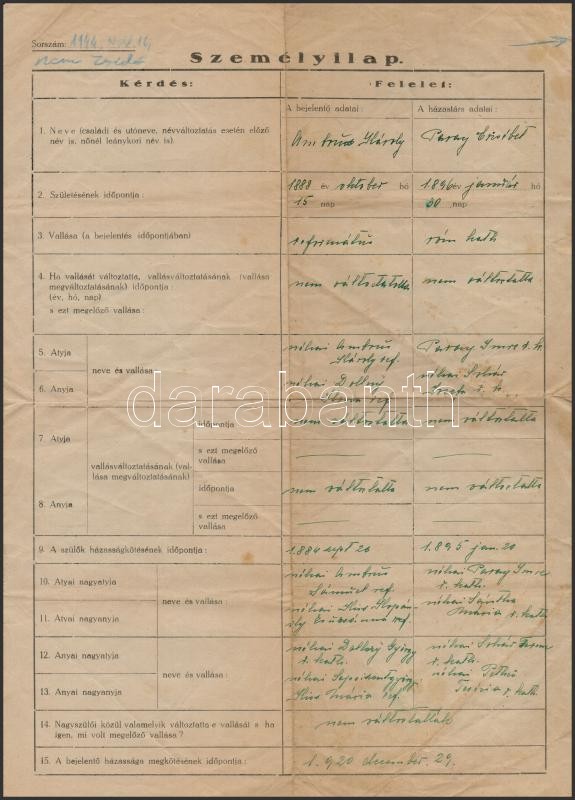 Sorszám: 1944. nov. 14,
nem zsidó
Személyilap.
Kérdés: Felelet:
A bejelentő adatai: A házastárs adatai:
1. Neve (családi és utóneve, névváltoztatás esetén előző
név is, nőnél leánykori név is).
Ambrus Károly
Paray Erzsébet
2. Születésének időpontja:
1888 év október hó
15 nap
1896 év január hó
30 nap
3. Vallása (a bejelentés időpontjában)
református
róm kath
4. Ha vallását változtatta, vallásváltoztatásának (vallása
megváltoztatásának) időpontja:
(év, hó, nap)
s ezt megelőző vallása:
nem változtatta
nem változtatta
5. Atyja
6. Anyja
neve és vallása
néhai Ambrus
Károly ref.
néhai
ref
Paray Imre r. k.
néhai
r. k.
darabanth
7. Atyja
8. Anyja
vallásváltoztatásának (val-
lása megváltoztatásának)
időpontja
nem változtatta
nem változtatta
s ezt megelőző
vallása
időpontja
nem változtatta
nem változtatta
s ezt megelőző
vallása
9. A szülők házasságkötésének időpontja:
1884 sept 20
1895 jan. 20
10. Atyai nagyatyja
11. Atyai nagyanyja
neve és vallása:
néhai Ambrus
Sámuel ref.
néhai Kiss
ref
néhai Paray Imre
r. kath.
néhai
Mária r. kath
12. Anyai nagyatyja
13. Anyai nagyanyja
neve és vallása:
néhai György
r. kath.
néhai
Kiss Mária ref.
néhai
r. kath.
néhai
r. kath.
14. Nagyszülői közül valamelyik változtatta-e vallását s ha
igen, mi volt megelőző vallása?
nem változtatták
15. A bejelentő házassága megkötésének időpontja:
1.920 december. 29.